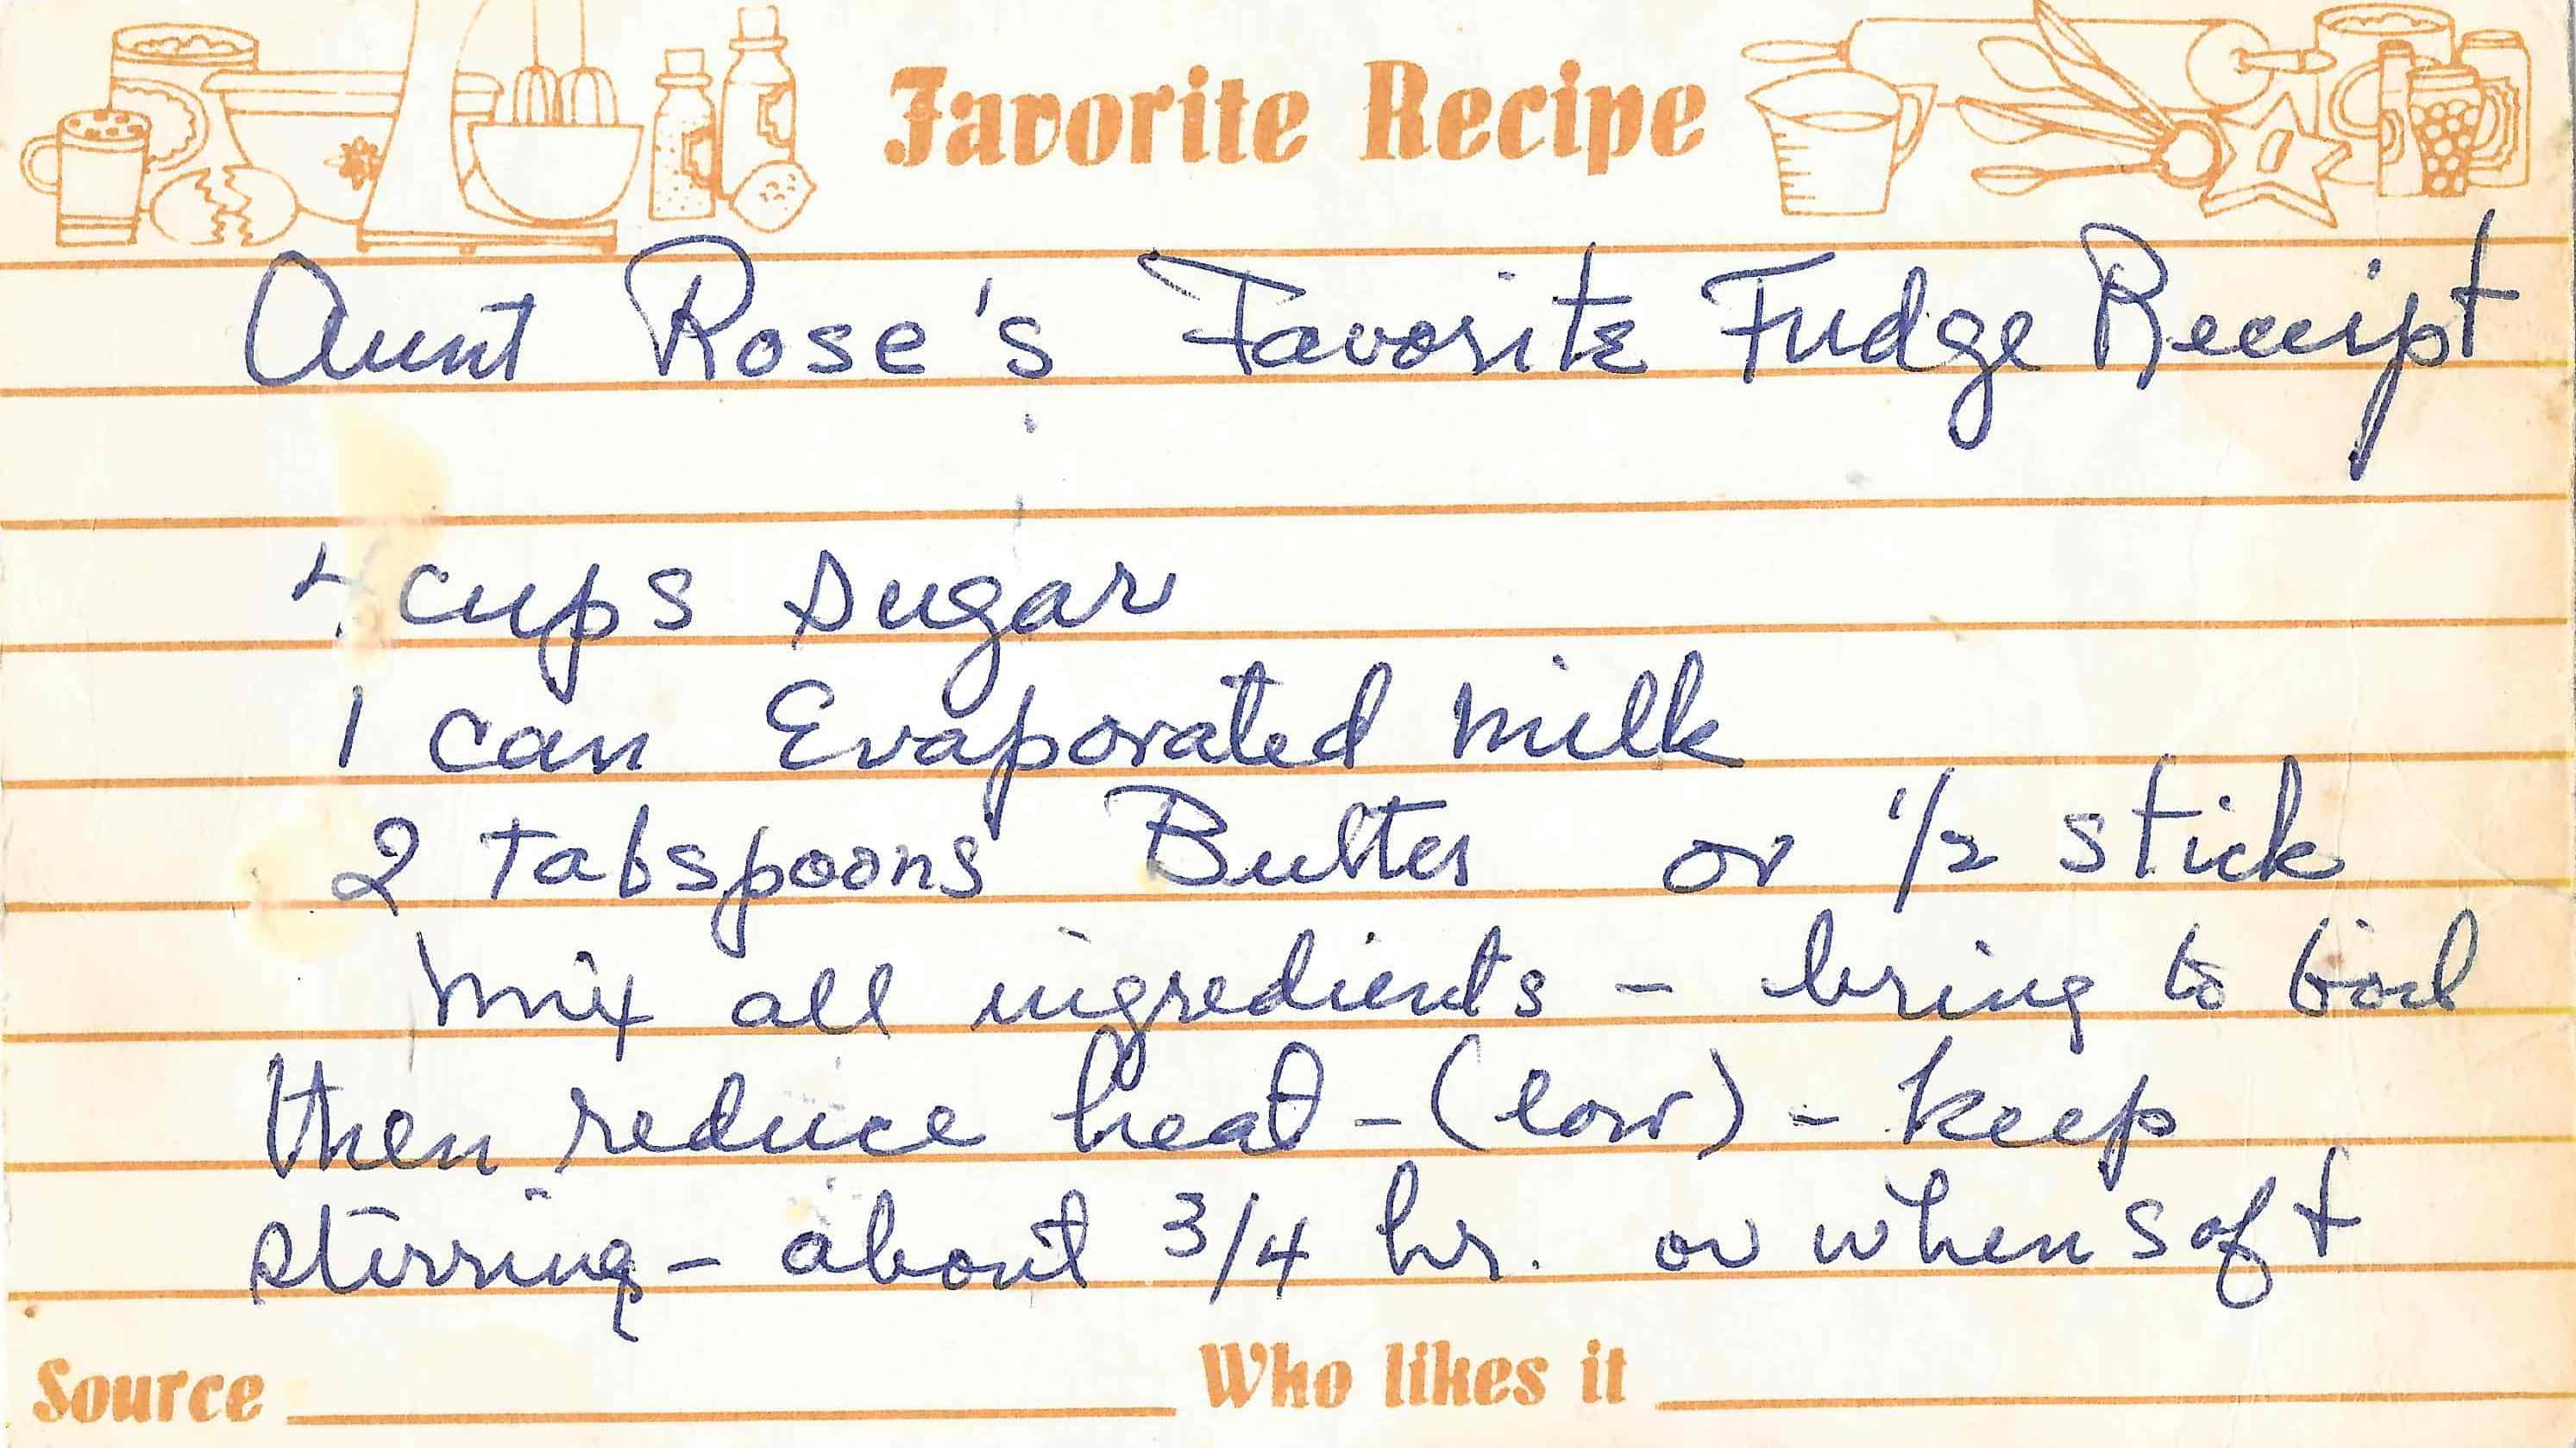 Favorite Recipe
Aunt Rose's Favorite Fudge Receipt
4 cups sugar
1 can Evaporated milk
2 tabspoons Butter or 1/2 stick
mix all ingredients - bring to boil
then reduce heat - (low) - keep
stirring - about 3/4 hr. or when soft
Source Who likes it